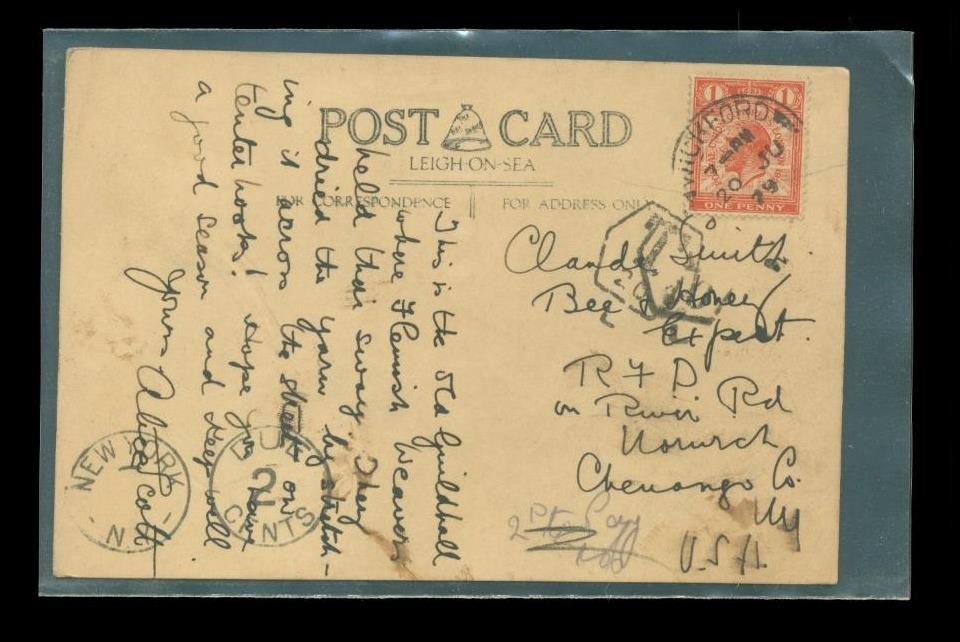 POST CARD
LEIGH-ON-SEA
FOR CORRESPONDENCE
FOR ADDRESS ONLY
This is the Old Guildhall
where Flemish Weavers
held their sway. They
dried the yarn by stretch-
ing it across the street on
tenterhooks! Hope you have
a good season and keep well
Yours
Claude Smith
Bee & Honey
Expert.
R F D
on River Rd
Norwich
Chenango Co.
NY
U.S.A.
1 1
ONE PENNY
WICKFORD
7 PM
20 JU
29
T
NEW YORK
N.
DUE
2
CENTS
2